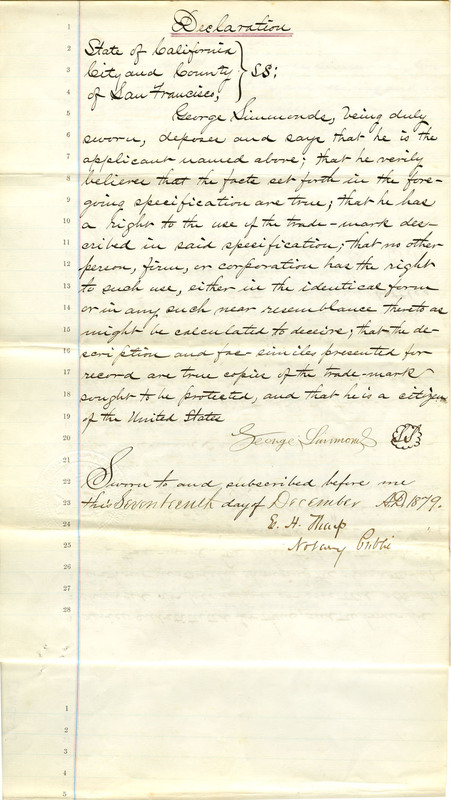 1 Declaration
2 State of California
3 City and County } SS:
4 of San Francisco;
5 George Simmonds, being duly
6 sworn, deposes and says that he is the
7 applicant named above; that he verily
8 believes that the facts set forth in the fore-
9 going specification are true; that he has
10 a right to the use of the trade-mark des-
11 cribed in said specification; that no other
12 person, firm, or corporation has the right
13 to such use, either in the identical form
14 or in any such near resemblance thereto as
15 might be calculated to deceive; that the de-
16 scription and fac-similes presented for
17 record are true copies of the trade-mark
18 sought to be protected, and that he is a citizen
19 of the United States
20 George Simmonds
21
22 Sworn to and subscribed before me
23 this Seventeenth day of December A.D. 1879.
24 E. H. Tharp
25 Notary Public
26
27
28
1
2
3
4
5